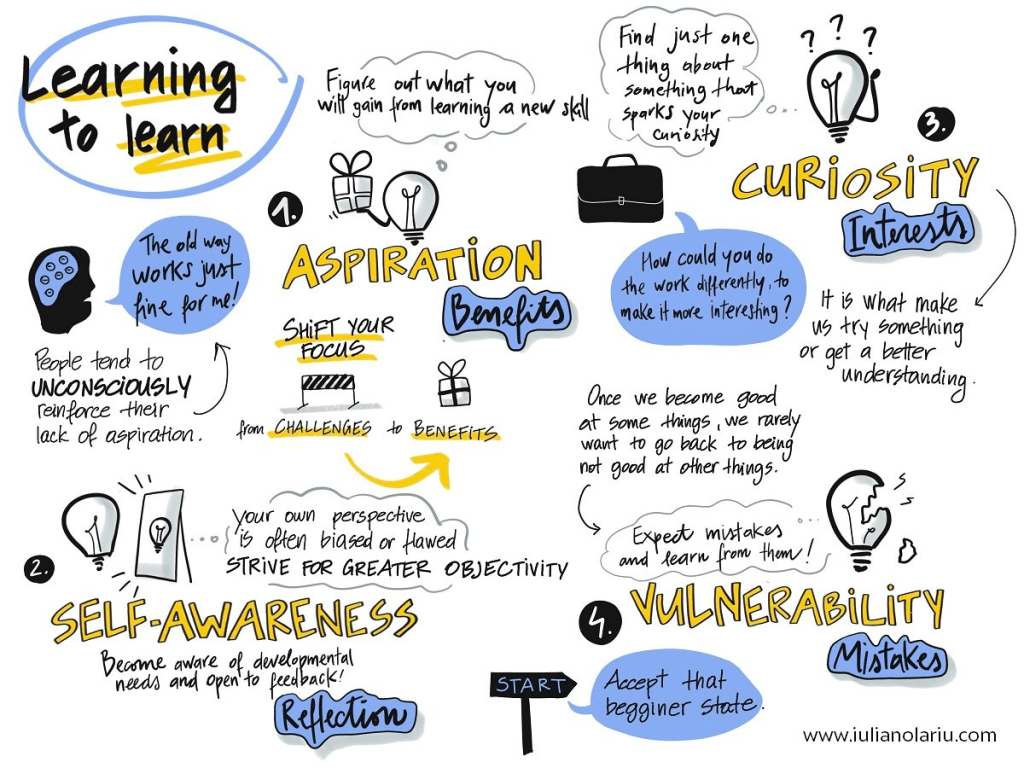 Learning
to learn
Figure out what you
will gain from learning a new skill
1.
ASPIRATION
Benefits
The old way
works just
fine for me!
People tend to
UNCONSCIOUSLY
reinforce their
lack of aspiration.
SHIFT YOUR
FOCUS
from CHALLENGES to BENEFITS
2.
your own perspective
is often biased or flawed
STRIVE FOR GREATER OBJECTIVITY
SELF-AWARENESS
Become aware of developmental
needs and open to feedback!
Reflection
Find just one
thing about
something that
sparks your
curiosity
? ? ?
3.
CURIOSITY
Interests
How could you do
the work differently, to
make it more interesting?
It is what make
us try something
or get a better
understanding.
Once we become good
at some things, we rarely
want to go back to being
not good at other things.
Expect mistakes
and learn from them!
4.
VULNERABILITY
Mistakes
START
Accept that
begginer state.
www.iulianolariu.com